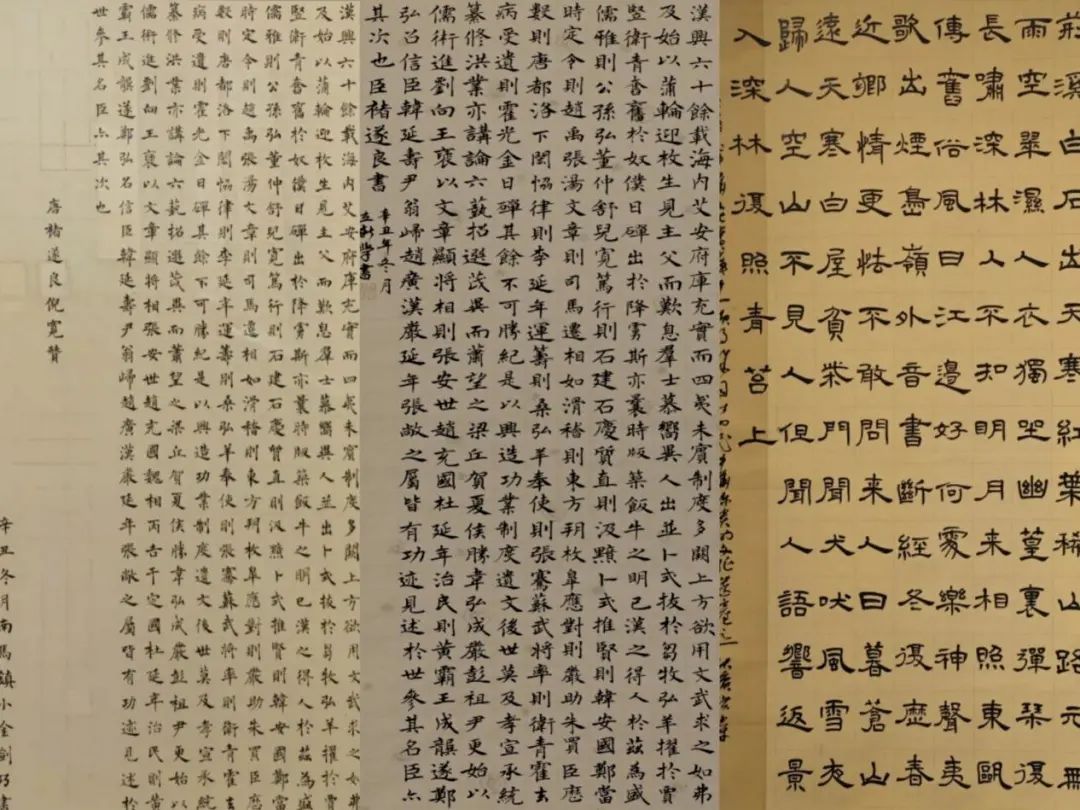 荊溪白石出天寒紅葉稀山路元無
雨空翠濕人衣獨坐幽篁裏彈琴復
長嘯深林人不知明月來相照東甌
傳舊俗風日江邊好何處樂神聲夷
歌出煙島嶺外音書斷經冬復歷春
近鄉情更怯不敢問來人日暮蒼山
遠天寒白屋貧柴門聞犬吠風雪夜
歸人空山不見人但聞人語響返景
入深林復照青苔上
漢興六十餘載海內艾安府庫充實而四夷未賓制度多闕上方欲用文武求之如弗
及始以蒲輪迎枚生見主父而歎息羣士慕嚮異人出並卜式拔於芻牧弘羊擢於賈
竪衛青奮於奴僕日磾出於降虜斯亦曩時版築飯牛之明已漢之得人於茲為盛
儒雅則公孫弘董仲舒兒寬篤行則石建石慶質直則汲黯卜式推賢則韓安國鄭當
時定令則趙禹張湯文章則司馬遷相如滑稽則東方朔枚皋應對則嚴助朱買臣曆
數則唐都洛下閎協律則李延年運籌則桑弘羊奉使則張騫蘇武將率則衛青霍去
病受遺則霍光金日磾其餘不可勝紀是以興造功業制度遺文後世莫及孝宣承統
纂修洪業亦講論六藝招選茂異而蕭望之梁丘賀夏侯勝韋弘成嚴彭祖尹更始以
儒術進劉向王褒以文章顯將相則張安世趙充國杜延年治民則黃霸王成龔遂鄭
弘召信臣韓延壽尹翁歸趙廣漢嚴延年張敞之屬皆有功迹見述於世參其名臣亦
其次也臣褚遂良書
辛丑年冬月
漢興六十餘載海內艾安府庫充實而四夷未賓制度多闕上方欲用文武求之如弗
及始以蒲輪迎枚生見主父而歎息羣士慕嚮異人並出卜式拔於芻牧弘羊擢於賈
竪衛青奮於奴僕日磾出於降虜斯亦曩時版築飯牛之明已漢之得人於茲為盛
儒雅則公孫弘董仲舒兒寬篤行則石建石慶質直則汲黯卜式推賢則韓安國鄭當
時定令則趙禹張湯文章則司馬遷相如滑稽則東方朔枚皋應對則嚴助朱買臣曆
數則唐都洛下閎協律則李延年運籌則桑弘羊奉使則張騫蘇武將率則衛青霍去
病受遺則霍光金日磾其餘不可勝紀是以興造功業制度遺文後世莫及孝宣承統
纂修洪業亦講論六藝招選茂異而蕭望之梁丘賀夏侯勝韋弘成嚴彭祖尹更始以
儒術進劉向王褒以文章顯將相張安世趙充國魏相丙吉于定國杜延年治民則黃
霸王成龔遂鄭弘召信臣韓延壽尹翁歸趙廣漢嚴延年張敞之屬皆有功迹見述於
世參其名臣亦其次也
唐褚遂良倪寬贊
辛丑冬月南馬鎮小金劍巧書